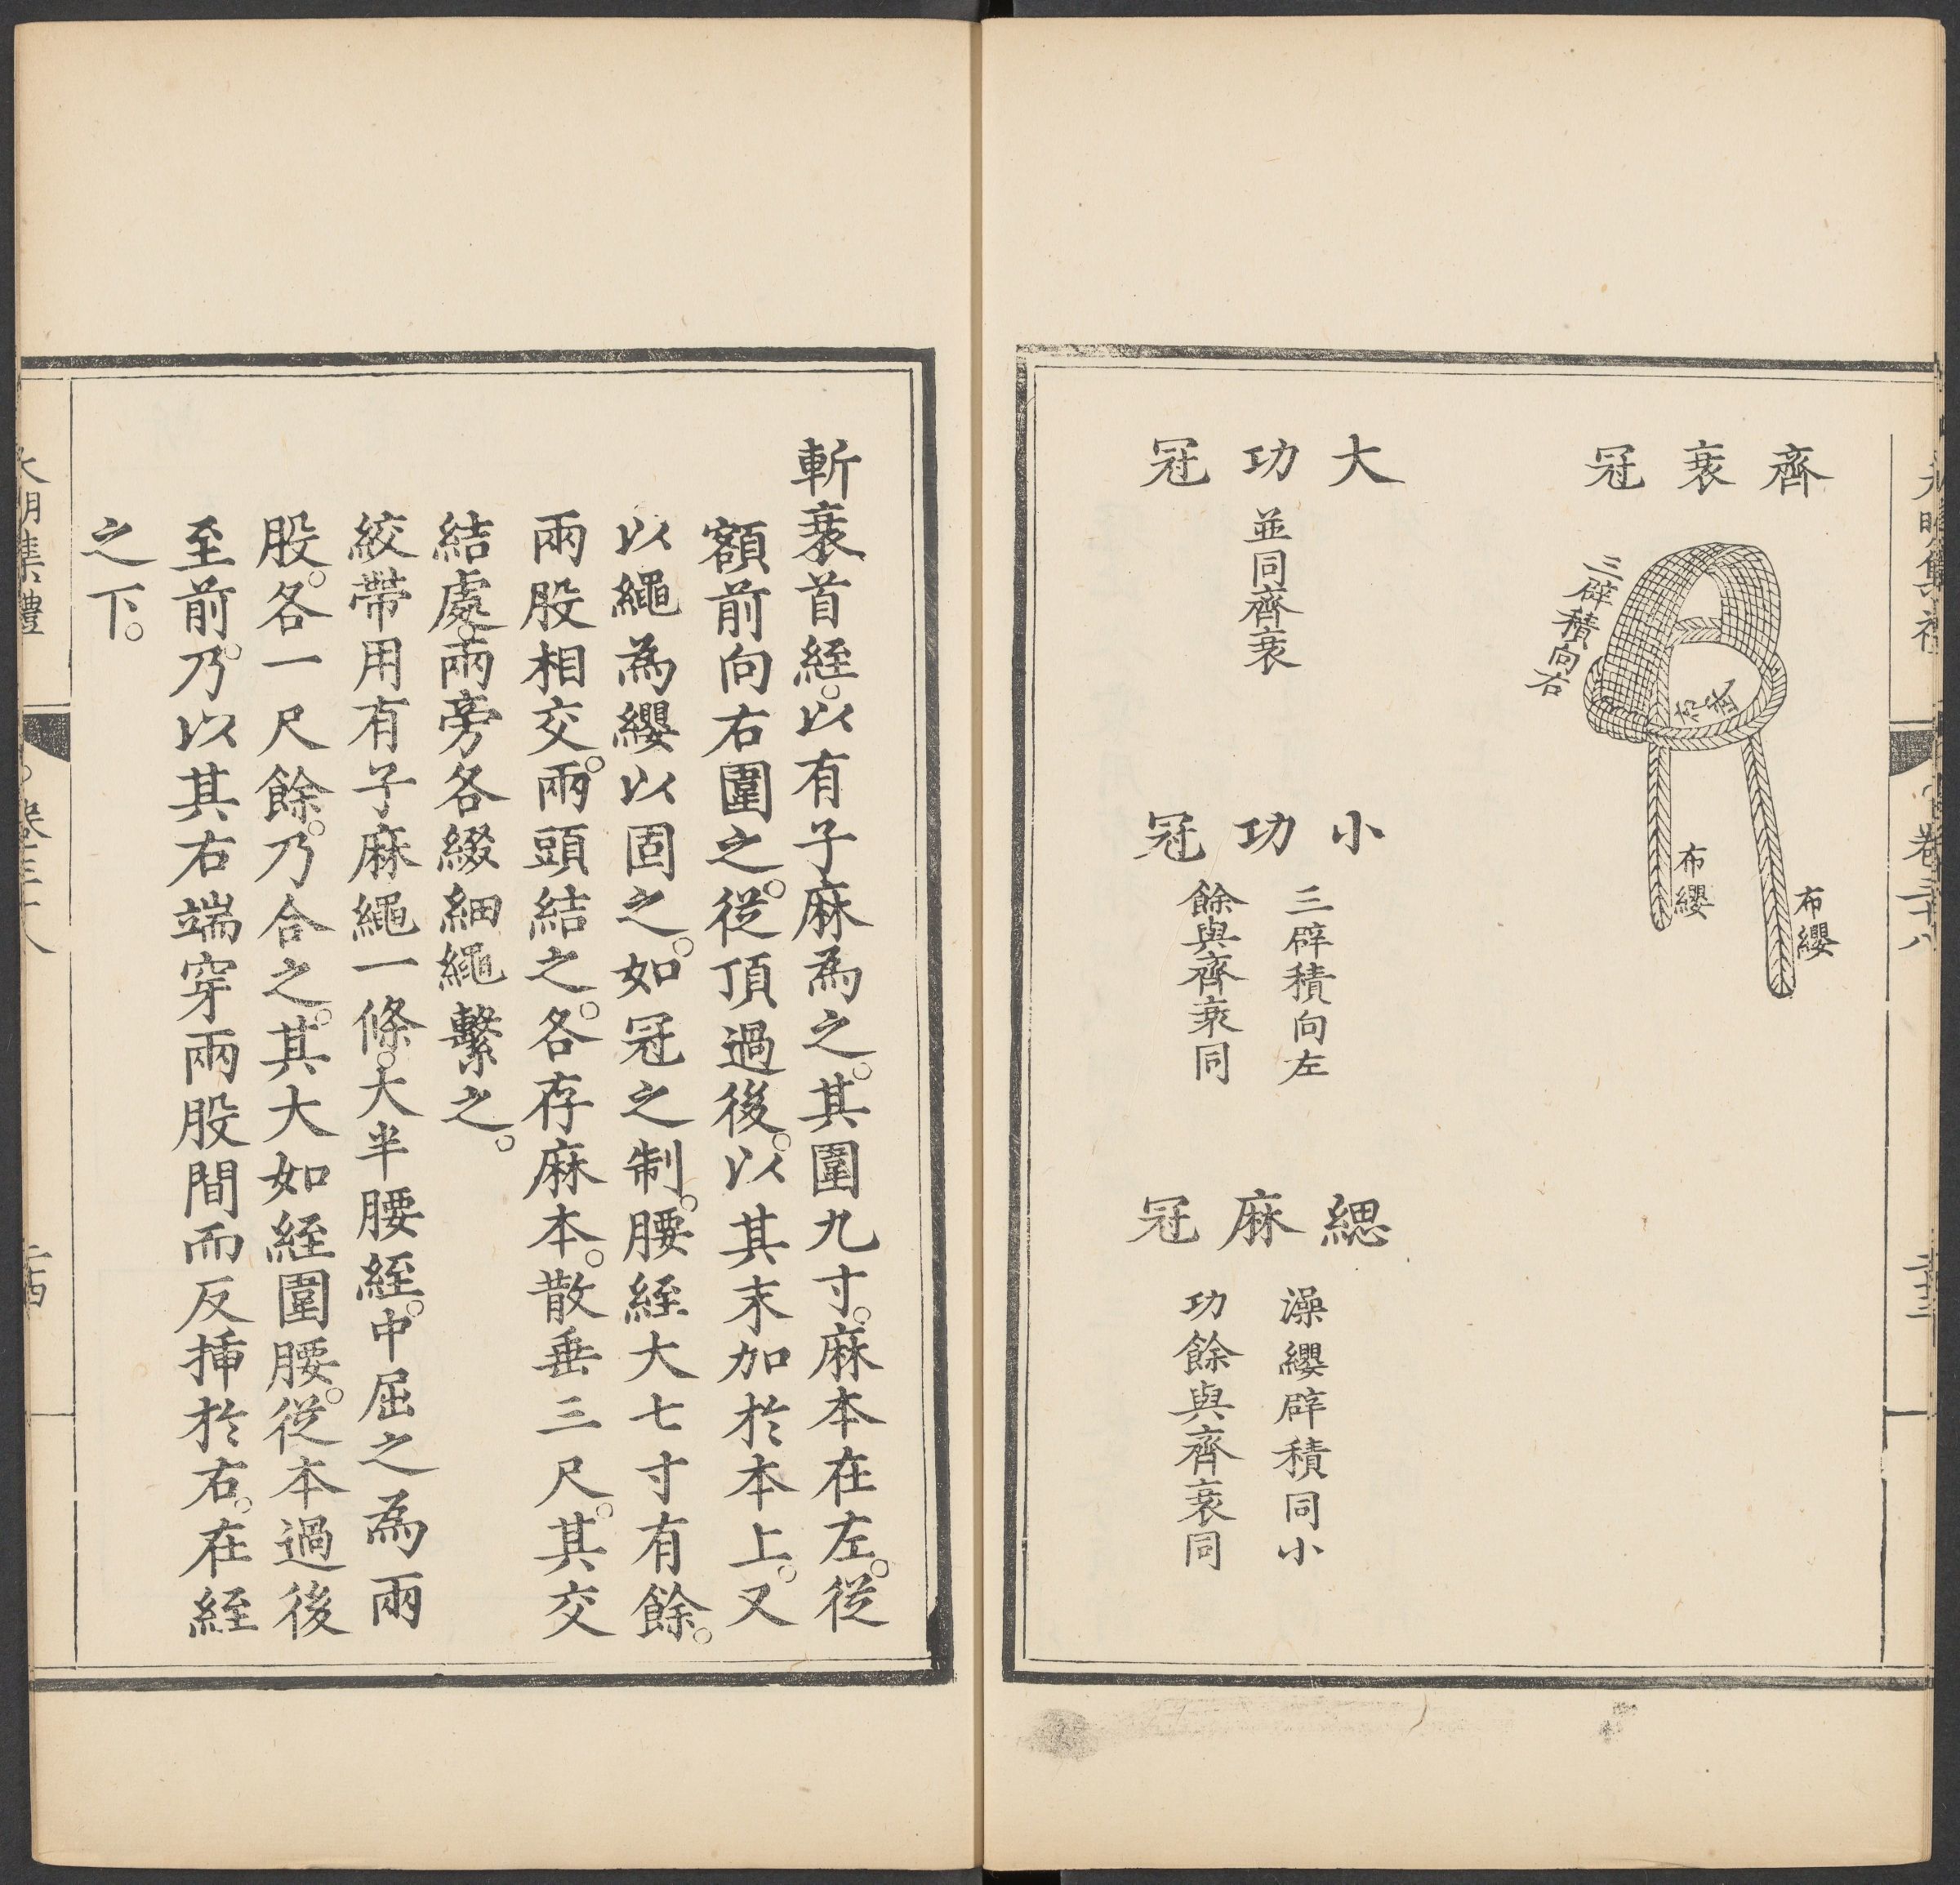 大明集禮
卷三十八
二十三
齊衰冠
三辟積向右
布武
布纓
布纓
大功冠
並同齊衰
小功冠
三辟積向左
餘與齊衰同
緦麻冠
澡纓辟積同小
功餘與齊衰同
斬衰首絰。以有子麻為之。其圍九寸。麻本在左。從
額前向右圍之。從頂過後。以其末加於本上。又
以繩為纓以固之。如冠之制。腰絰大七寸有餘。
兩股相交。兩頭結之。各存麻本。散垂三尺。其交
結處。兩旁各綴細繩繫之。
絞帶用有子麻繩一條。大半腰絰。中屈之為兩
股。各一尺餘。乃合之。其大如絰圍腰。從本過後
至前。乃以其右端穿兩股間而反揷於右。在絰
之下。
大明集禮
卷三十八
二十四